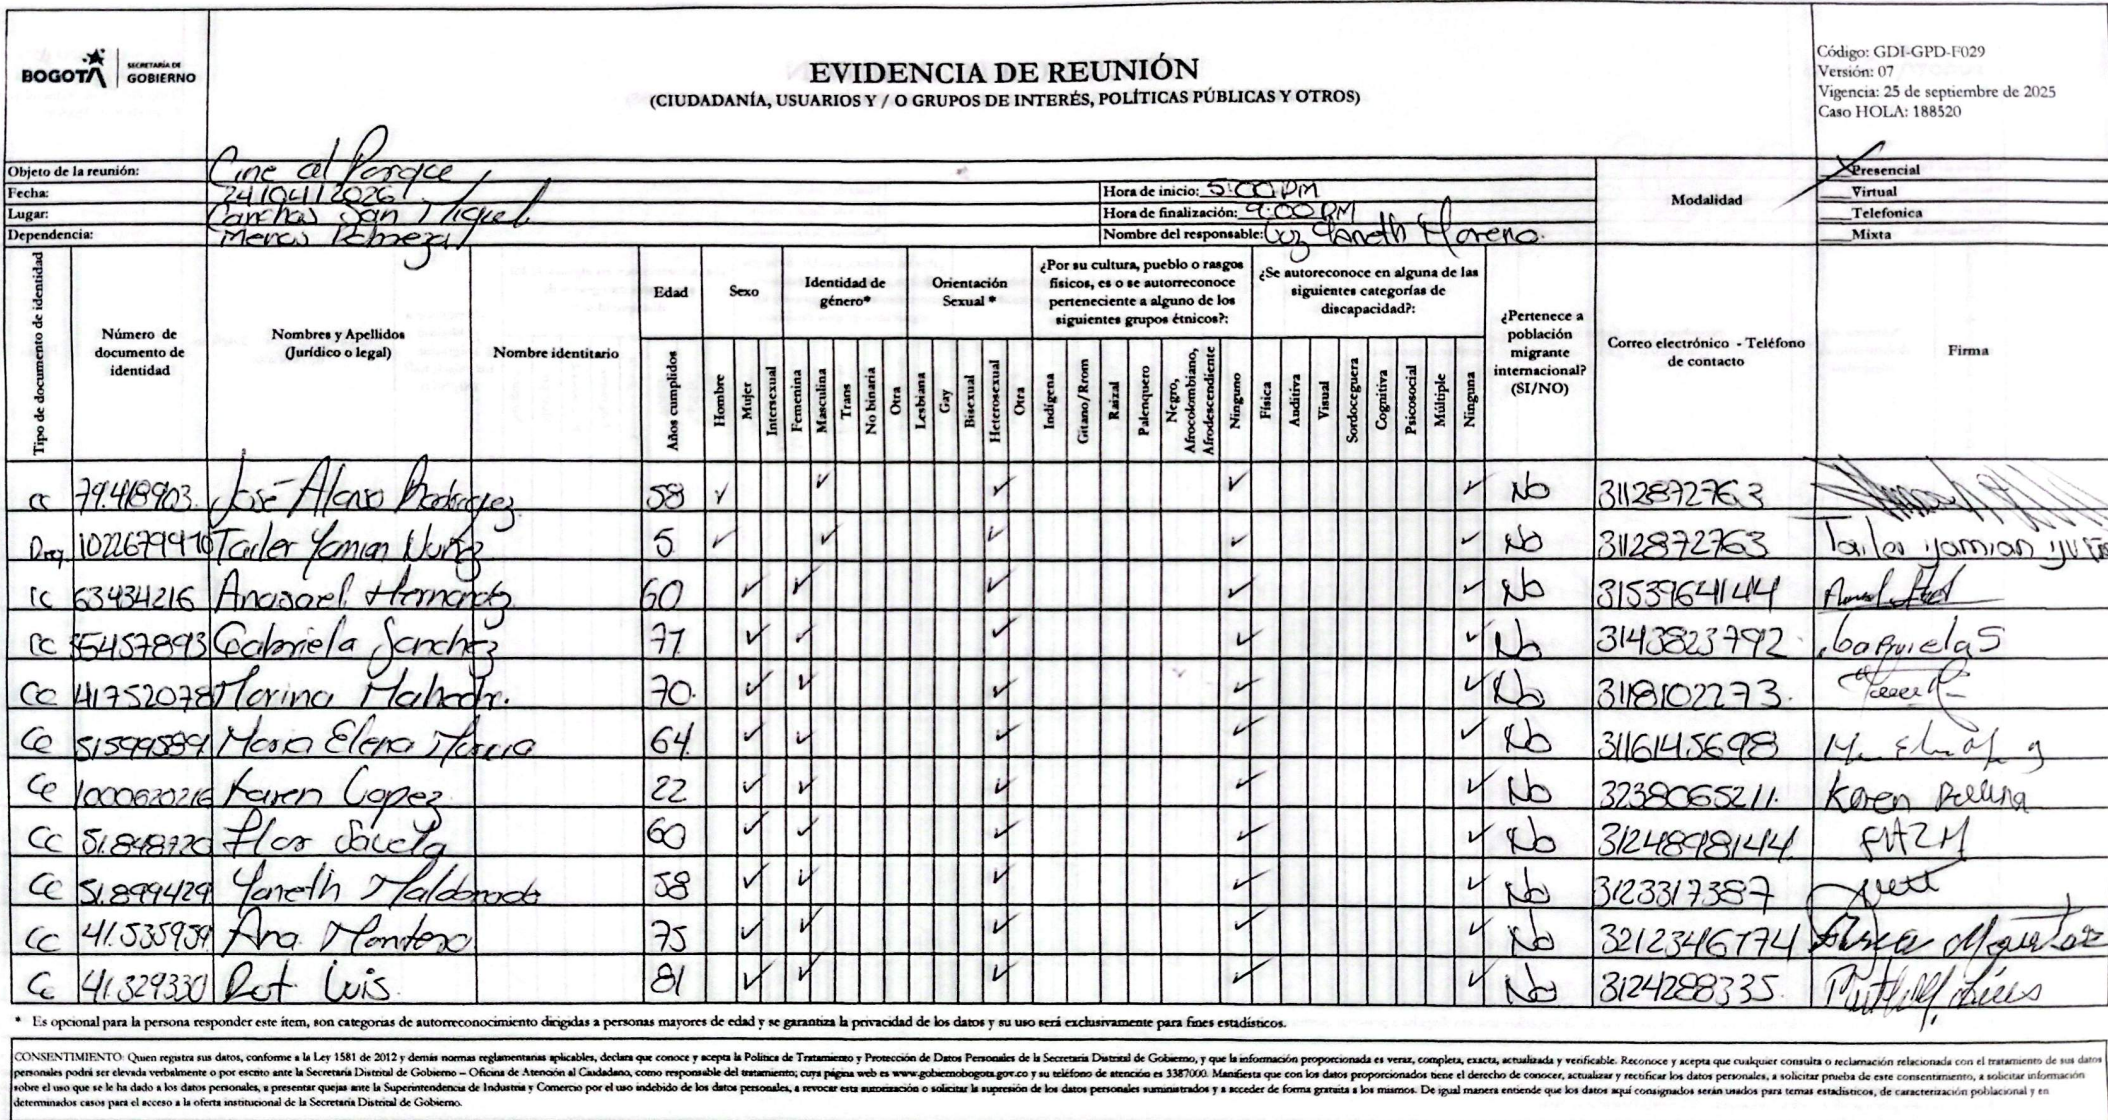 BOGOTÁ
SECRETARÍA DE
GOBIERNO
EVIDENCIA DE REUNIÓN
(CIUDADANÍA, USUARIOS Y / O GRUPOS DE INTERÉS, POLÍTICAS PÚBLICAS Y OTROS)
Código: GDI-GPD-F029
Versión: 07
Vigencia: 25 de septiembre de 2025
Caso HOLA: 188520
Objeto de la reunión: Cine al Parque
Fecha: 24/04/2026
Lugar: Canchas San Miguel
Dependencia:
Hora de inicio: 5:00 PM
Hora de finalización: 9:00 PM
Nombre del responsable: Luz Yaneth Moreno
Modalidad
Presencial
___Virtual
___Telefonica
___Mixta
Tipo de documento de identidad
Número de documento de identidad
Nombres y Apellidos (Jurídico o legal)
Nombre identitario
Edad
Años cumplidos
Sexo
Hombre
Mujer
Intersexual
Identidad de género*
Femenina
Masculina
Trans
No binaria
Otra
Orientación Sexual *
Lesbiana
Gay
Bisexual
Heterosexual
Otra
¿Por su cultura, pueblo o rasgos físicos, es o se autorreconoce perteneciente a alguno de los siguientes grupos étnicos?:
Indígena
Gitano/Rrom
Raizal
Palenquero
Negro, Afrocolombiano, Afrodescendiente
Ninguno
¿Se autoreconoce en alguna de las siguientes categorías de discapacidad?:
Física
Auditiva
Visual
Sordoceguera
Cognitiva
Psicosocial
Múltiple
Ninguna
¿Pertenece a población migrante internacional? (SI/NO)
Correo electrónico - Teléfono de contacto
Firma
cc 79.418903. José Alonso Rodriguez 58 ✓ ✓ ✓ ✓ ✓ No 3112872763
1022679970 Tailer Yamian 5 ✓ ✓ ✓ ✓ ✓ No 3112872763 Tailer yamian
cc 63434216 Anasael Hernandez 60 ✓ ✓ ✓ ✓ ✓ No 3153964144
cc Gabriela Sanchez 71 ✓ ✓ ✓ ✓ ✓ No 3143823792
CC 41752078 Marina 70. ✓ ✓ ✓ ✓ ✓ No 3118102273.
Cc 51599589 Maria Elena 64 ✓ ✓ ✓ ✓ ✓ No 3116145698
Cc 1000620216 Karen Lopez 22 ✓ ✓ ✓ ✓ ✓ No 3238065211. Karen
Cc 51.848720 Flor 60 ✓ ✓ ✓ ✓ ✓ No 3124898144
Cc 51.899429 Yaneth Maldonado 58 ✓ ✓ ✓ ✓ ✓ No 3123317387
Cc 41.535959 Ana Montero 75 ✓ ✓ ✓ ✓ ✓ No 3212346774
Cc 41.329330 Rut Luis 81 ✓ ✓ ✓ ✓ ✓ No 3124288335.
* Es opcional para la persona responder este ítem, son categorías de autorreconocimiento dirigidas a personas mayores de edad y se garantiza la privacidad de los datos y su uso será exclusivamente para fines estadísticos.
CONSENTIMIENTO: Quien registra sus datos, conforme a la Ley 1581 de 2012 y demás normas reglamentarias aplicables, declara que conoce y acepta la Política de Tratamiento y Protección de Datos Personales de la Secretaría Distrital de Gobierno, y que la información proporcionada es veraz, completa, exacta, actualizada y verificable. Reconoce y acepta que cualquier consulta o reclamación relacionada con el tratamiento de sus datos
personales podrá ser elevada verbalmente o por escrito ante la Secretaría Distrital de Gobierno – Oficina de Atención al Ciudadano, como responsable del tratamiento; cuya página web es www.gobiernobogota.gov.co y su teléfono de atención es 3387000. Manifiesta que con los datos proporcionados tiene el derecho de conocer, actualizar y rectificar los datos personales, a solicitar prueba de este consentimiento, a solicitar información
sobre el uso que se le ha dado a los datos personales, a presentar quejas ante la Superintendencia de Industria y Comercio por el uso indebido de los datos personales, a revocar esta autorización o solicitar la supresión de los datos personales suministrados y a acceder de forma gratuita a los mismos. De igual manera entiende que los datos aquí consignados serán usados para temas estadísticos, de caracterización poblacional y en
determinados casos para el acceso a la oferta institucional de la Secretaría Distrital de Gobierno.